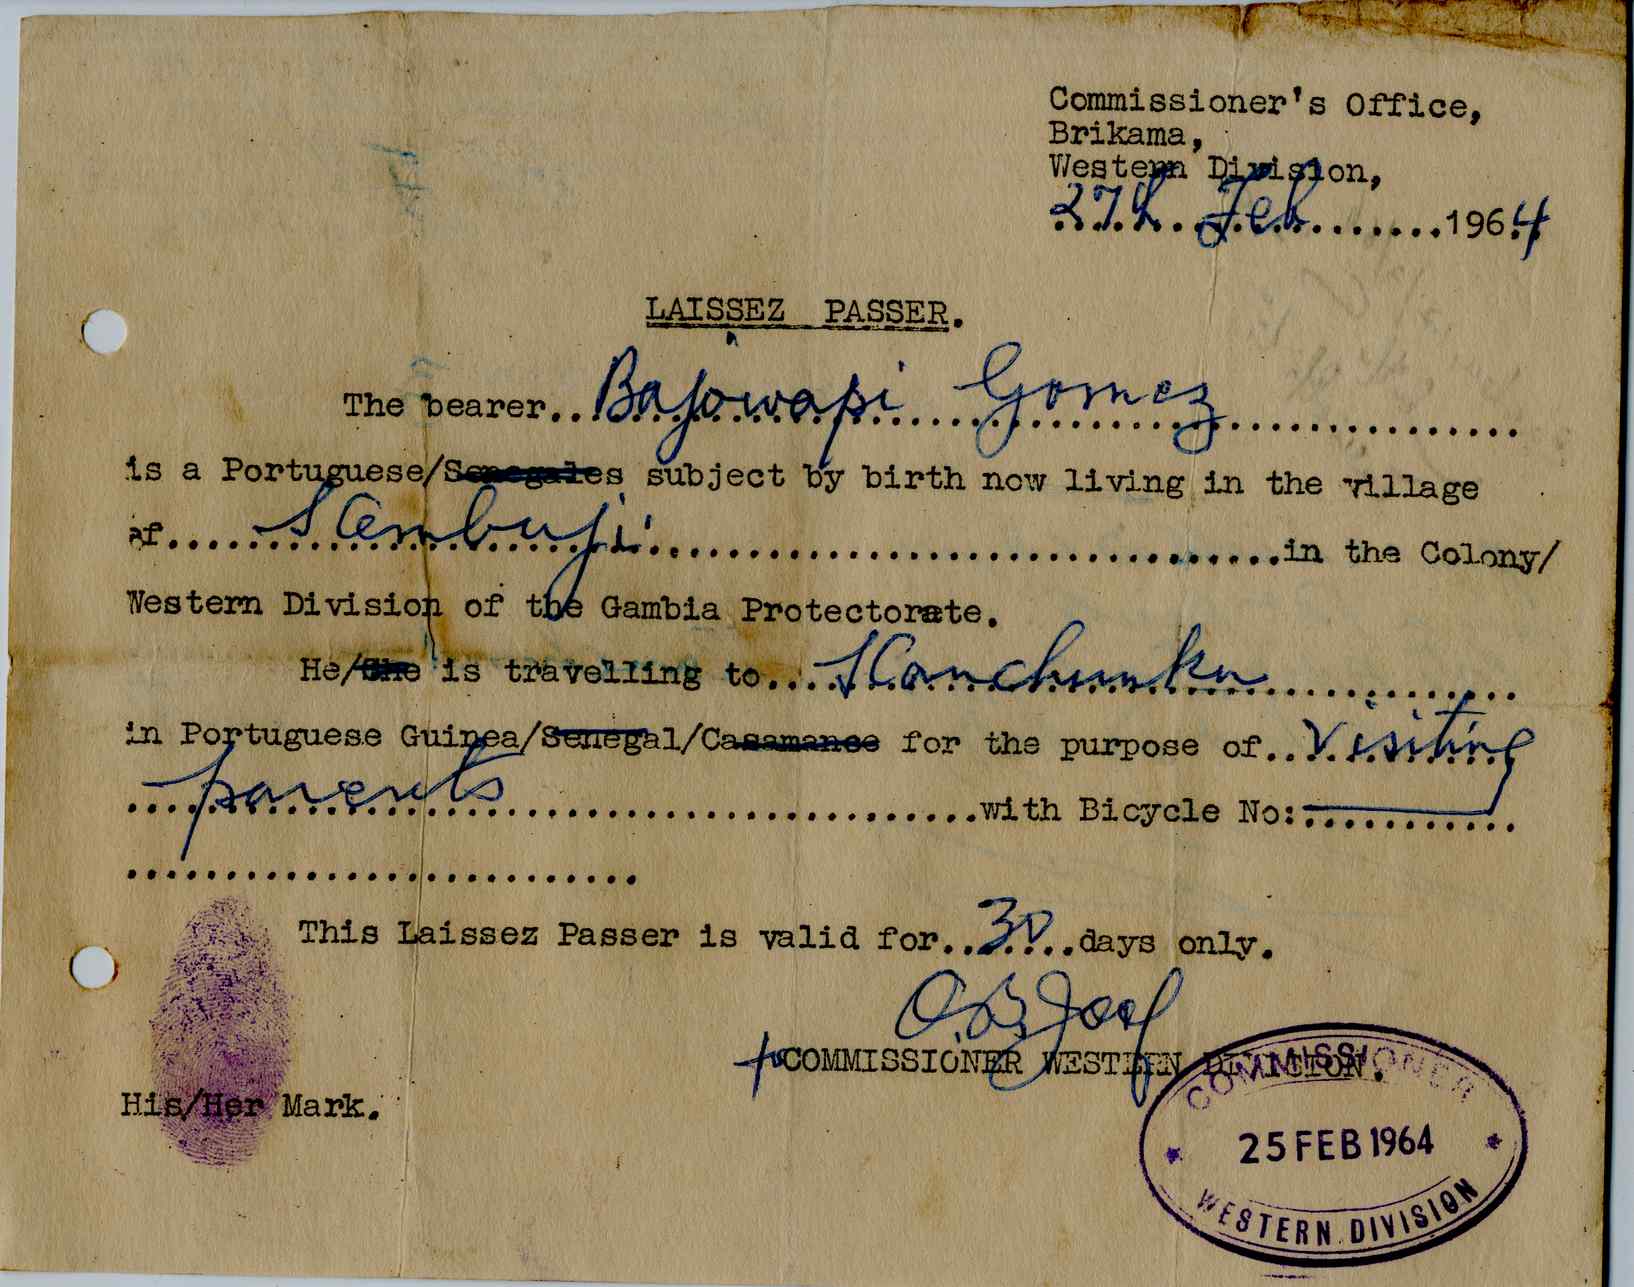 Commissioner's Office,
Brikama,
Western Division,
27th Feb........1964
LAISSEZ PASSER.
The bearer..Bajowapi Gomez................
is a Portuguese/Senegales subject by birth now living in the village
of.....Sambuji................................in the Colony/
Western Division of the Gambia Protectorate.
He/She is travelling to...Kanchunku.............
in Portuguese Guinea/Senegal/Casamance for the purpose of..visiting
....parents........................with Bicycle No:...........
..........................
This Laissez Passer is valid for..30..days only.
O.B. Joof
for COMMISSIONER WESTERN DIVISION.
His/Her Mark.
COMMISSIONER
25 FEB 1964
WESTERN DIVISION